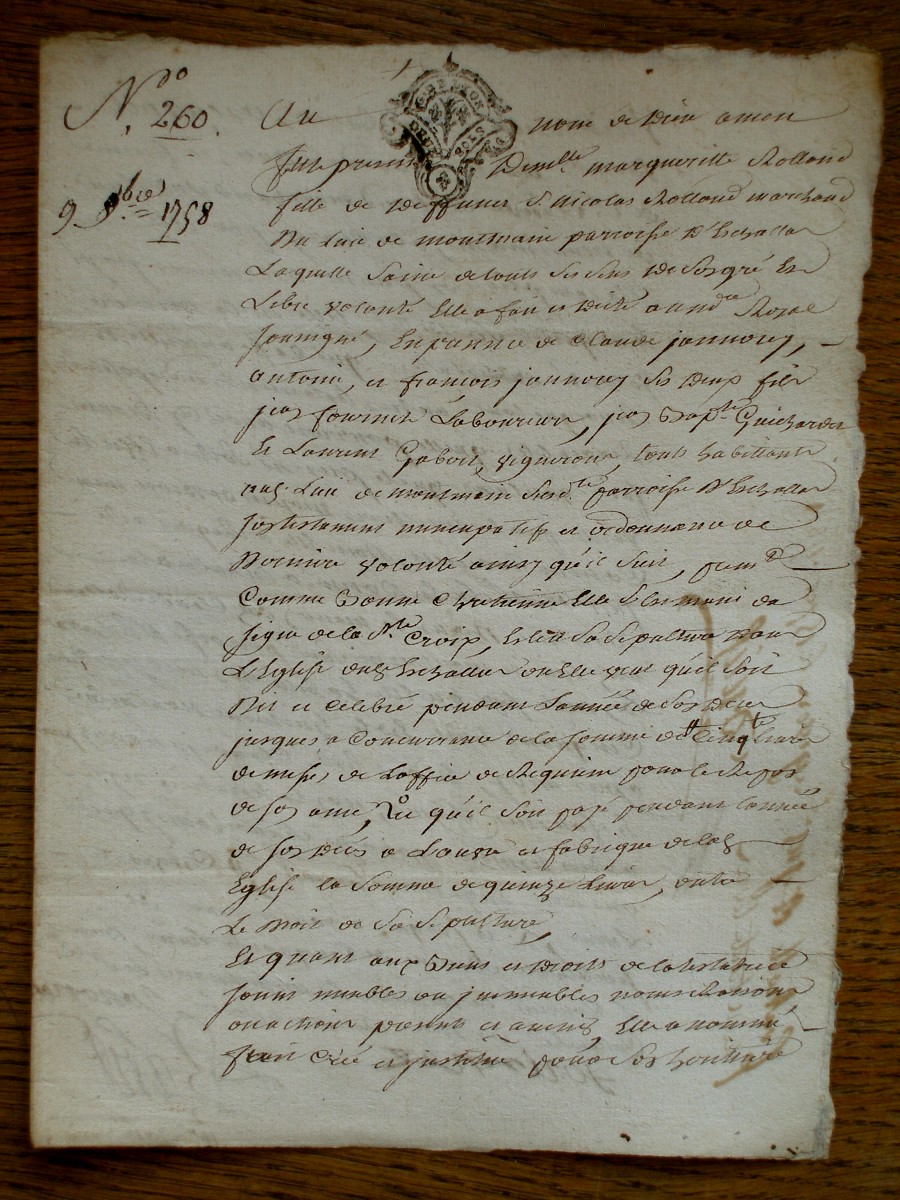 N.° 260.
9. 9bre 1758
G. DE LYON
DEUX SOLS
Au nom de Dieu amen
fut presente Demlle margueritte Rolland
fille de deffunct Sr nicolas Rolland marchand
du lieu de montmain parroisse d'Echallas
Laquelle saine de touts ses sens de son gré et
Libre volonté Elle a fait et dicté au nore Royal
soussigné, En presence de claude jannoray,
antoine, et françois jannoray ses deux fils
jean fournel Laboureur, jean Bapte Guichardet
et Laurent Gabert, vignerons, touts habittants
aud. Lieu de montmain susdte parroisse d'Echallas
son testament nuncupatif et ordonnance de
derniere volonté ainsy qu'il suit, premt
Comme Bonne chretienne Elle s'est muni du
signe de la Ste Croix, Esleu sa sepulture dans
L'Eglise dud. Echallas ou elle veut qu'il soit
dit et celebré pendant L'année de son deces
jusques a concurrance de la somme de cinqte livres
de messes de L'office de Requiem pour le Repos
de son ame, & qu'il soit payé pendant L'année
de son deces a L'euvre et fabrique de lad.
Eglise la somme de quinze Livres, outre
Le droit de sa sepulture,
Et quant aux Biens et droits de la testatrice
soint meubles ou jmmeubles noms Raisons
ou actions presents et avenir, Elle a nommé
fait créé et jnstitué pour son heritiere